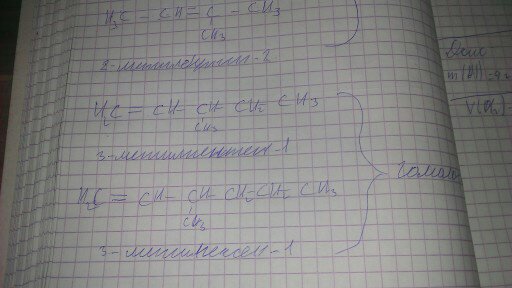 H₃C - CH = C - CH₃
CH₃
2-метилбутен-2
H₂C = CH - CH CH₂ CH3
CH₃
3-метилпентен-1
H₂C = CH - CH CH₂ CH₂ CH₃
CH₃
3-метилгексен-1
гомол
Дано